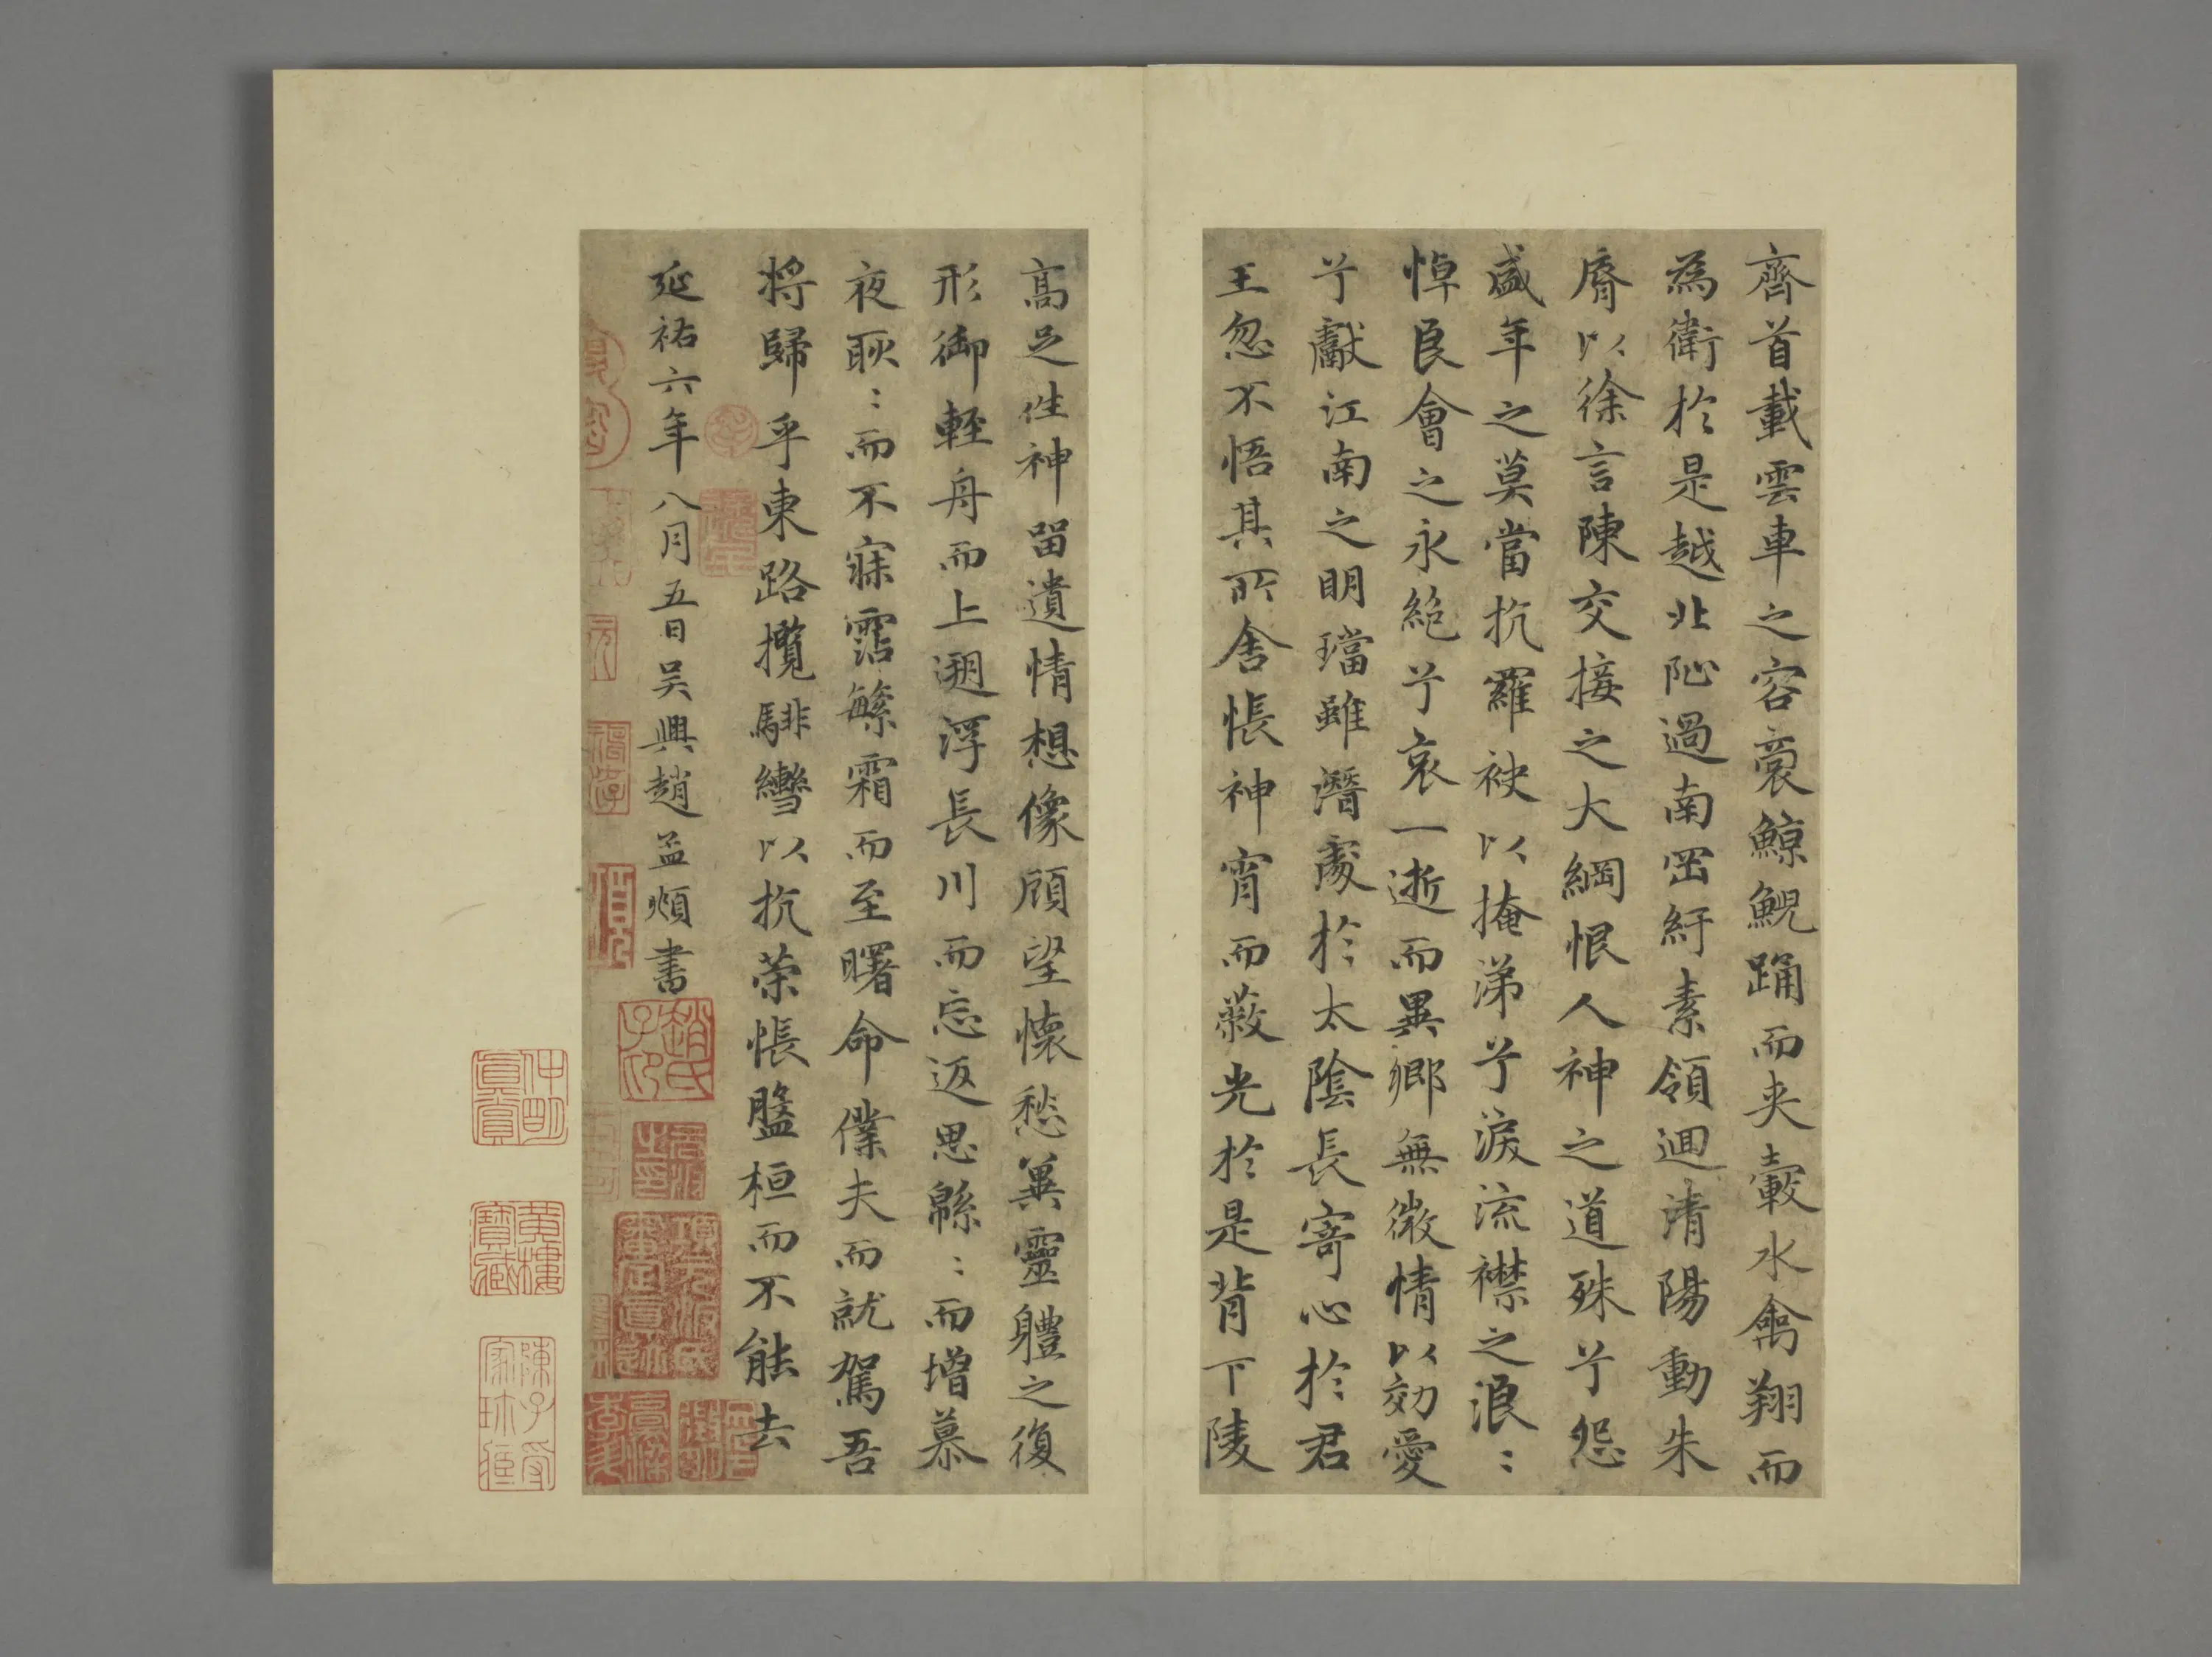 齊首載雲車之容裔鯨鯢踊而夾轂水禽翔而
為衛於是越北沚過南岡紆素領迴清陽動朱
脣以徐言陳交接之大綱恨人神之道殊兮怨
盛年之莫當抗羅袂以掩涕兮淚流襟之浪〻
悼良會之永絕兮哀一逝而異鄉無微情以効愛
兮獻江南之明璫雖潛處於太陰長寄心於君
王忽不悟其所舍悵神宵而蔽光於是背下陵
高足往神留遺情想像顧望懷愁冀靈體之復
形御輕舟而上遡浮長川而忘返思緜〻而增慕
夜耿〻而不寐霑繁霜而至曙命僕夫而就駕吾
將歸乎東路攬騑轡以抗策悵盤桓而不能去
延祐六年八月五日吳興趙孟頫書
趙氏子昂
項元汴氏審定真跡
仲明真賞
黃樓寶藏
陳子受家珍藏